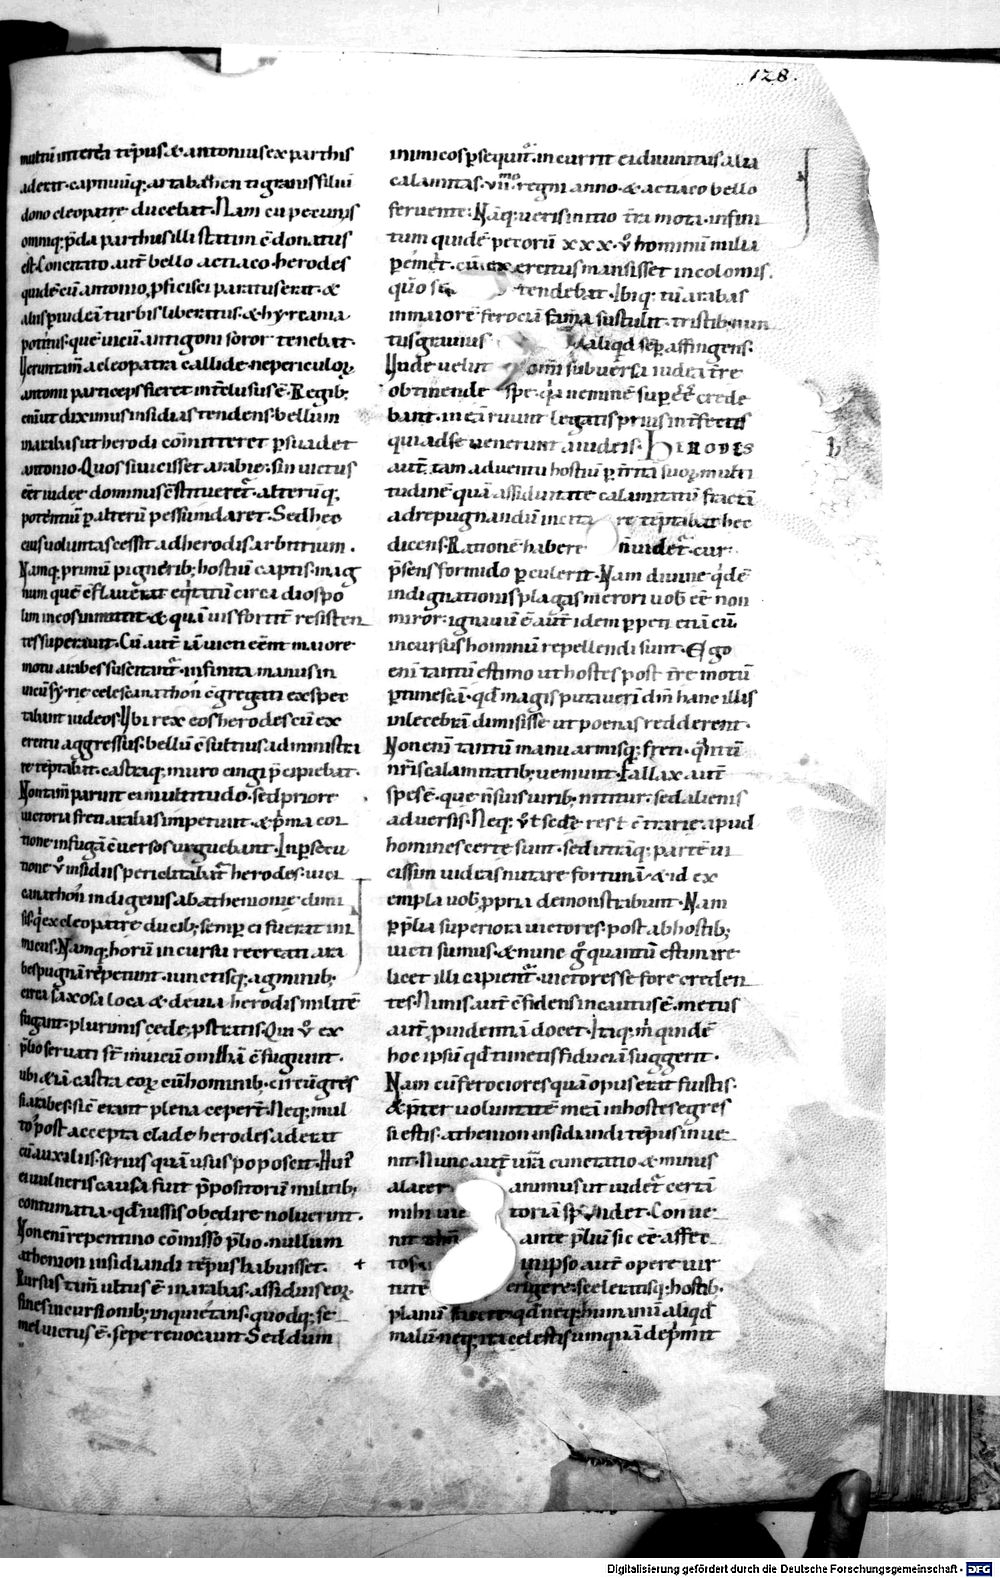 128.
multū interea tēpus & antonius ex parthis
aderit. captiuūq; artabazen tigranis filiū
dono cleopatre ducebat. Nam cū pecuniis
omniq; p̄da parthus illi statim ē donatus
est. Concitato aut̄ bello actiaco. herodes
quidē cū antonio, pficisci paratus erat. &
aliis p iudeā turbis liberatus. & hyrcania
potitus. quē incū antigoni soror tenebat.
Ueruntam̄ a cleopatra callide ne periculoꝝ
antonii particeps fieret int̄clusus ē. Regib;
eni ut diximus insidias tendens. bellum
in arabas ut herodi cōmitteret psuadet
antonio. Quos si uicisset arabie. sin uictus
eēt iudee dominus ēstituerēt. alterūq;
potentiū p alterū pessundaret. Sed hec
eius uoluntas cessit ad herodis arbitrium.
Namq; primū pignerib; hostiū captis. mag
num quē ēflauerat eqitatū circa diospo
lim in eos inmittit & quā uis fortit̄ resisten
tes superauit. Cū aut̄ iā uicti eēnt maiore
motu arabes suscitant̄. infinita manus in
incū syrie celes canathon ēgregati exspec
tabant iudeos. Ubi rex eos herodes cū ex
ercitu aggressus. bellū ēsultius administra
re tēptabat. castraq; muro cingi p̄cipiebat.
Non tam̄ paruit ei multitudo. sed priore
uictoria freti arabas impetunt. & p̄ma con
tione in fugā ēuersos urguebant. In psecu
tione ů insidiis periclitabat̄ herodes. inci
canathon indigenis ab athenione dimi
sis. q̇ ex cleopatre ducib; semp ei fuerat ini
micus. Namq; horū incursu recreati ara
bes pugnā repetunt. iunctisq; agminib;
circa saxosa loca & deuia herodis militē
fugant. plurimis cede, pstratis. Qui ů ex
p̄lio seruati st̄ in uicū ormizā ēfugiunt.
ubi & iā castra eoꝝ cū hominib. circūgres
si arabes. sic̄ erant plena ceperī. Neq; mul
to post accepta clade herodes aderat
cū auxiliis. serius quā usus poposcit. Hui᷒
ei uulneris causa fuit p̄positorū militib;
contumatia. qd̄ iussis obedire noluerint.
Non eni repentino cōmisso p̄lio. nullum
athenion insidiandi tēpus habuisset.
Rursus tam̄ ultus ē in arabas. assidue eoꝝ
fines incursionib; inquietans. quodq; se
mel uictus ē. sepe reuocauit. Sed dum
inimicos psequit̄. incurrit ei diuinitus alia
calamitas. vii᷒ regni anno. & actiaco bello
feruente. Nāq; ueris initio t̄ra mota. infini
tum quidē pecorū xxx. ů hominū milia
pemēt. cū exercitus mansisset incolomis.
tendebat. Ibiq; tū arabas
in maiorē ferociā fama sustulit. tristib. nun
tus grauius aliqd semp affingens.
Unde uelut om̄i subuersa iudea t̄re
obtinende spe. q̇a neminē supeē crede
bant. in eā ruunt legatis prius int̄fectis
qui ad se uenerunt a iudeis. HERODES
aut̄. tam aduentu hostiū pt̄ritā suoꝝ multi
tudinē quā assiduitate calamitatū fractā
ad repugnandū incita re tēptabat hec
dicens. Rationē habere n̄ uidet̄. cur
p̄sens formido pculerit. Nam diuine qdē
indignationis plagas merori uob eē non
miror. ignauiū ē aut̄ idem p peti etiā cū
incursus hominū repellendi sunt. Ego
eni tantū estimo ut hostes post t̄re motū
ptimescā. qd̄ magis putauerī dm̄ hanc illis
inlecebrā dimisisse ut poenas redderent.
Non eni tantū manu armisq; freti. q̇ntū
nr̄is calamitatib; ueniunt. Fallax aut̄
spes ē. que n̄ suis uirib. nititur. sed alienis
aduersis. Neq; ůt sede res t ētrarie apud
homines certe sunt. sed utrāq; partē ui
cissim uideas nutare fortunā. & id ex
empla uob, ppria demonstrabunt. Nam
p p̄lia superiora uictores. post ab hostib;
uicti sumus. & nunc q̄ quantū estimare
licet illi capient̄. uictores se fore creden
tes. Nimis aut̄ ēfidens incautus ē. metus
aut̄, puidentiā docet. Itaq; m̄ quidē
hoc ipsū qd̄ timetis fiduciā suggerit.
Nam cū ferociores quā opus erat fuistis.
& p̄ter uoluntatē meā in hostes egres
si estis. athenion insidiandi tēpus inue
nit. Nunc aut̄ ur̄a cunctatio & minus
alacer animus ut uidet̄ certā
mihi uic toriā spondet. Conue
nit ante p̄liū sic eē affec
tos. in ipso aut̄ opere uir
tutē erigere. sceleratisq; hostib.
planū facere. qd̄ neq; humanū aliqd̄
malū. neq; ita celestis umquā dep̄mit
Digitalisierung gefördert durch die Deutsche Forschungsgemeinschaft - DFG